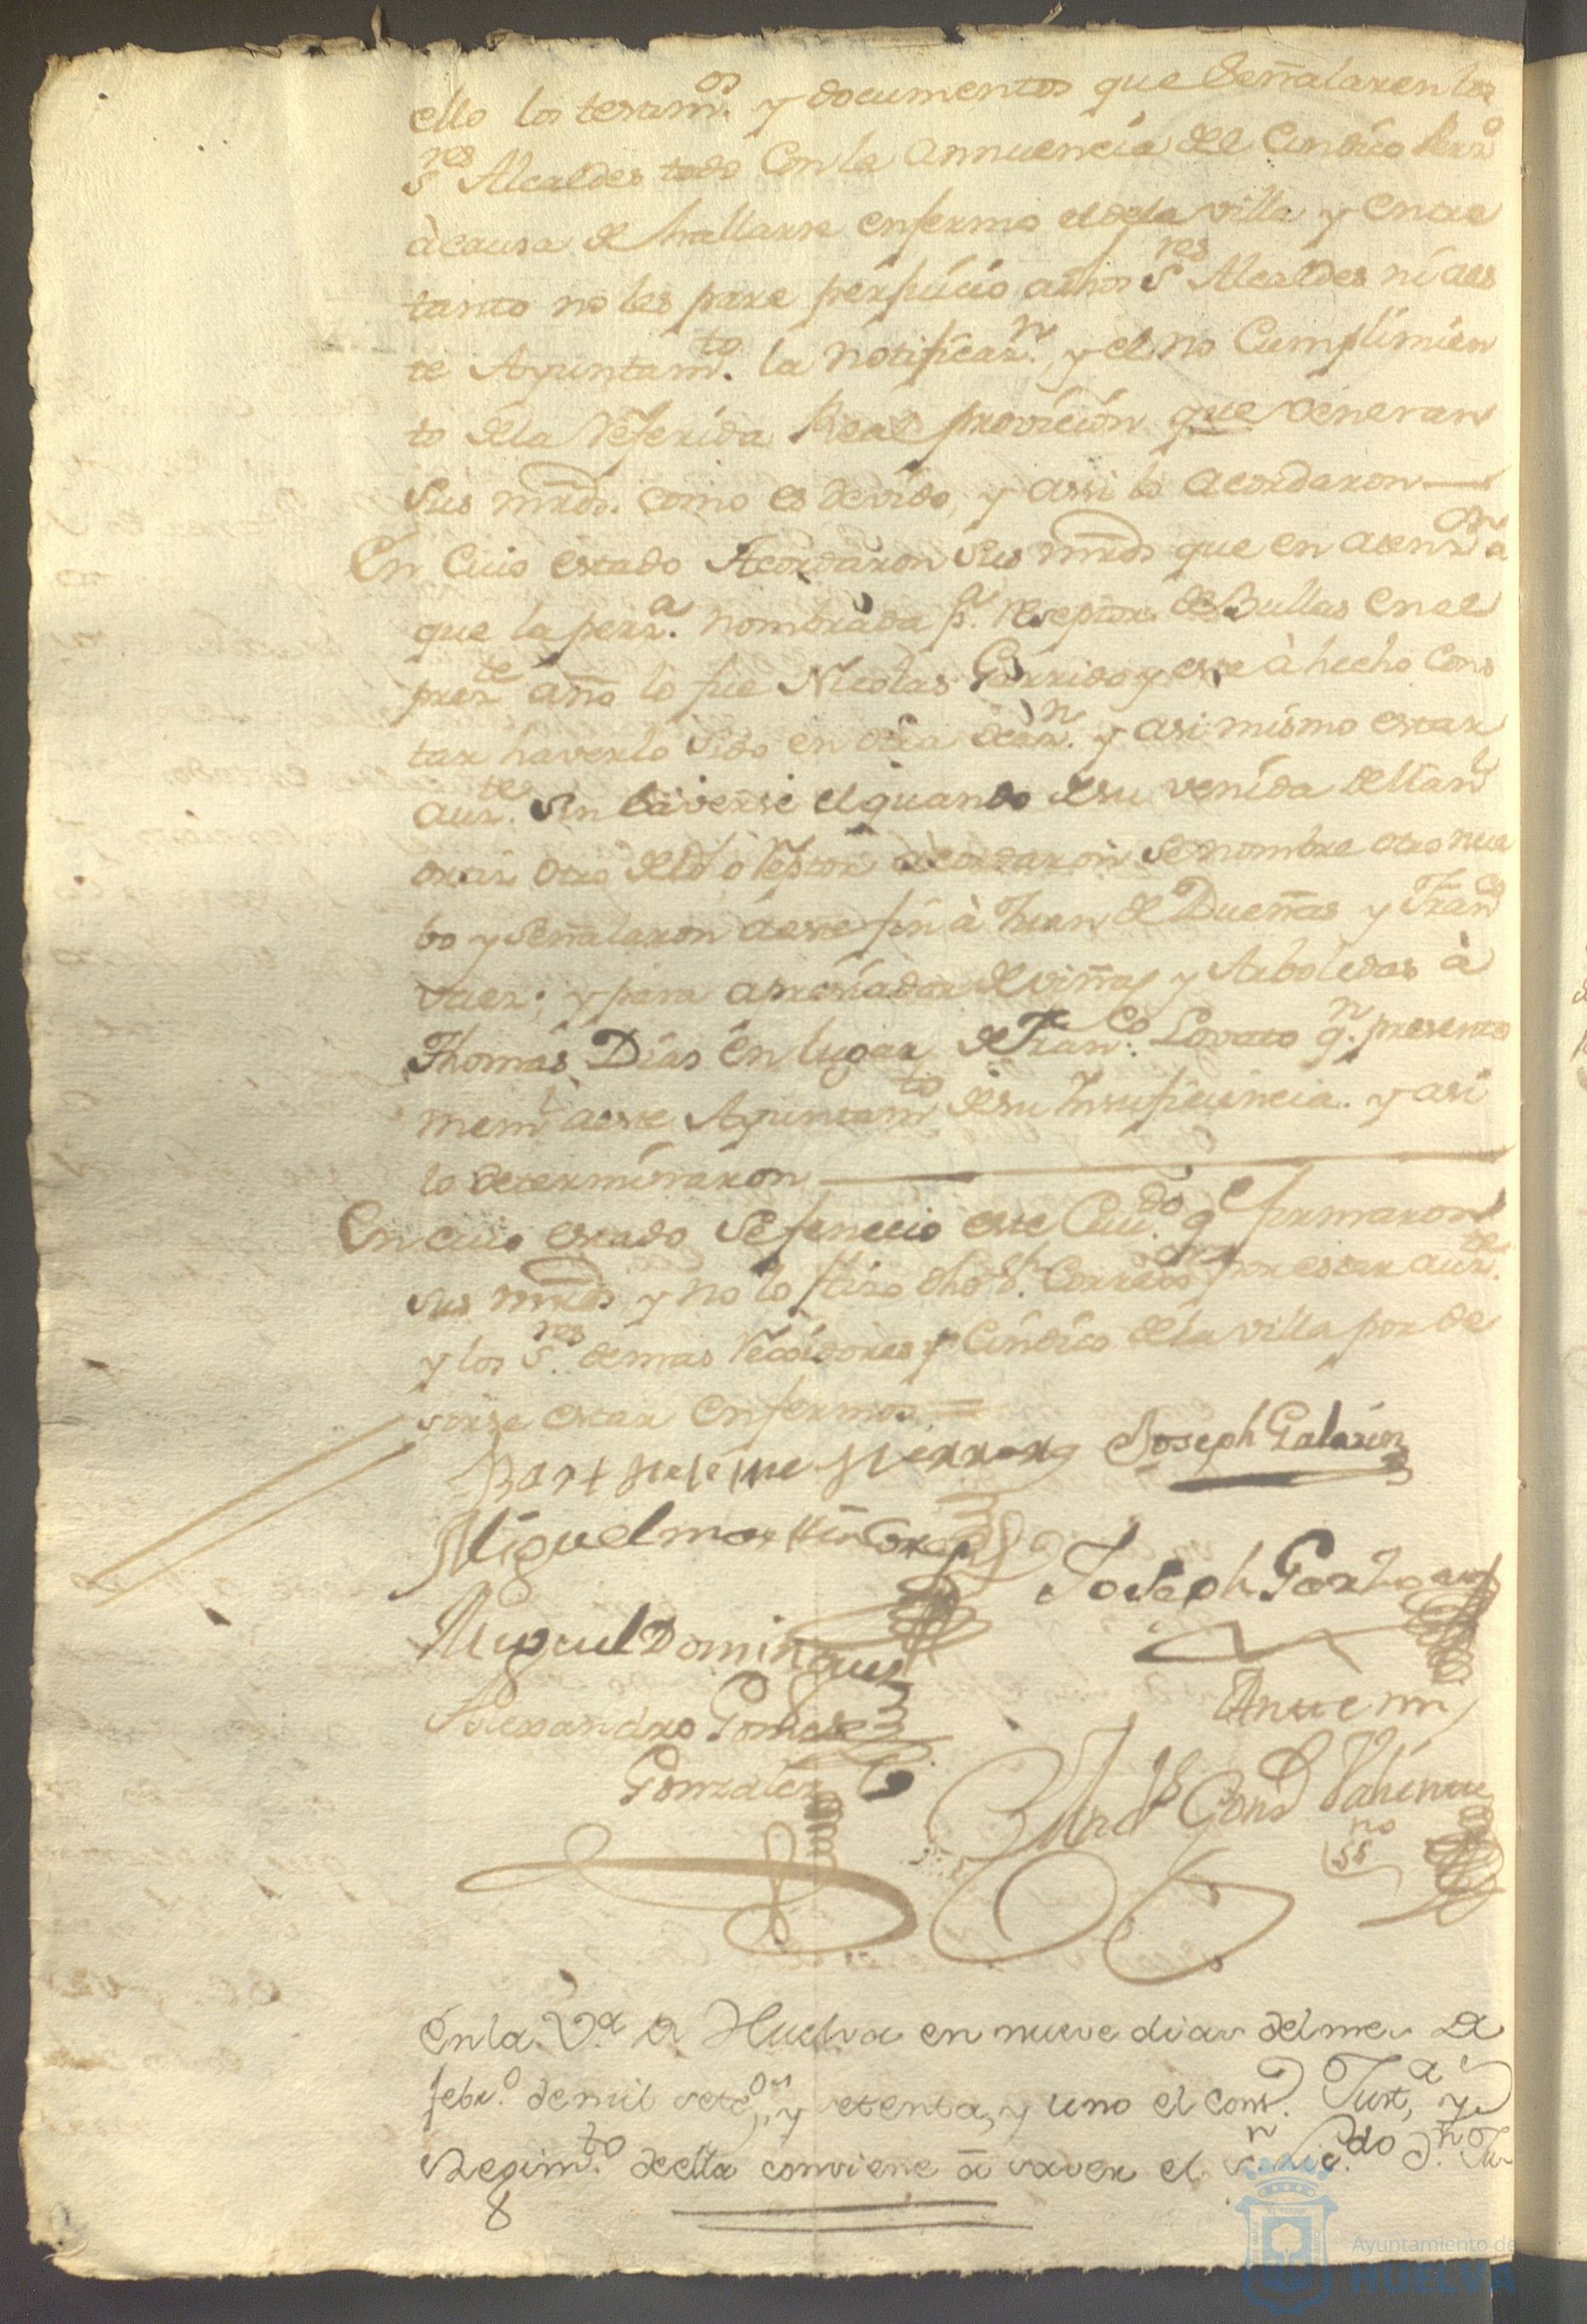 ello los testam.os y documentos que señalaren los
S.res Alcaldes todo con la annuencia de el Cindico Perz.o
à causa de hallarse enfermo el de la villa y entre
tanto no les pare perjuicio a dhos S.res Alcaldes ni a es
te Ayuntam.to la notificaz.n, y el no Cumplimien
to de la referida Real provicion que veneran
sus mrds. como es devido, y assi lo acordaron
En cuio estado Acordaron sus mrds que en atenz.on a
que la perz.a nombrada p.a reseptor de Bullas en el
prez.te año lo fue Nicolas Garrido y este à hecho cons
tar haverlo sido en otra ocaz.n y asi mismo estar
auz.te sin saverse el quando de su venida
otro acordaron se nombre otro nue
bo y señalaron a este fin à Juan de Dueñas y Fran.co
Vaez; y para apreciador de viñas y Arboledas à
Thomas Dias en lugar de Fran.co Lovato q.n presento
mem.l a este Ayuntam.to de su Insuficiencia. y asi
lo determinaron
En cuio estado se fenecio este Cavi.do q.e firmaron
sus mrds y no lo hizo dho S.r Corregi.dor por estar auz.te
y los S.res demas Regidores y Cindico de la villa por de
sirse estar enfermos =
Joseph Galavis
Miguel martin
Joseph Garzia
Miguel Dominguez
Alexandro Gomez
Gonzalez
Ante mi
Gonz
ss.no
En la V.a de Huelva en nueve dias del mes de
febr.o de mil setec.os y setenta, y uno el cons.o Just.a y
Regim.to de ella conviene à saver el S.r Lic.do D.n
8
Ayuntamiento de
HUELVA